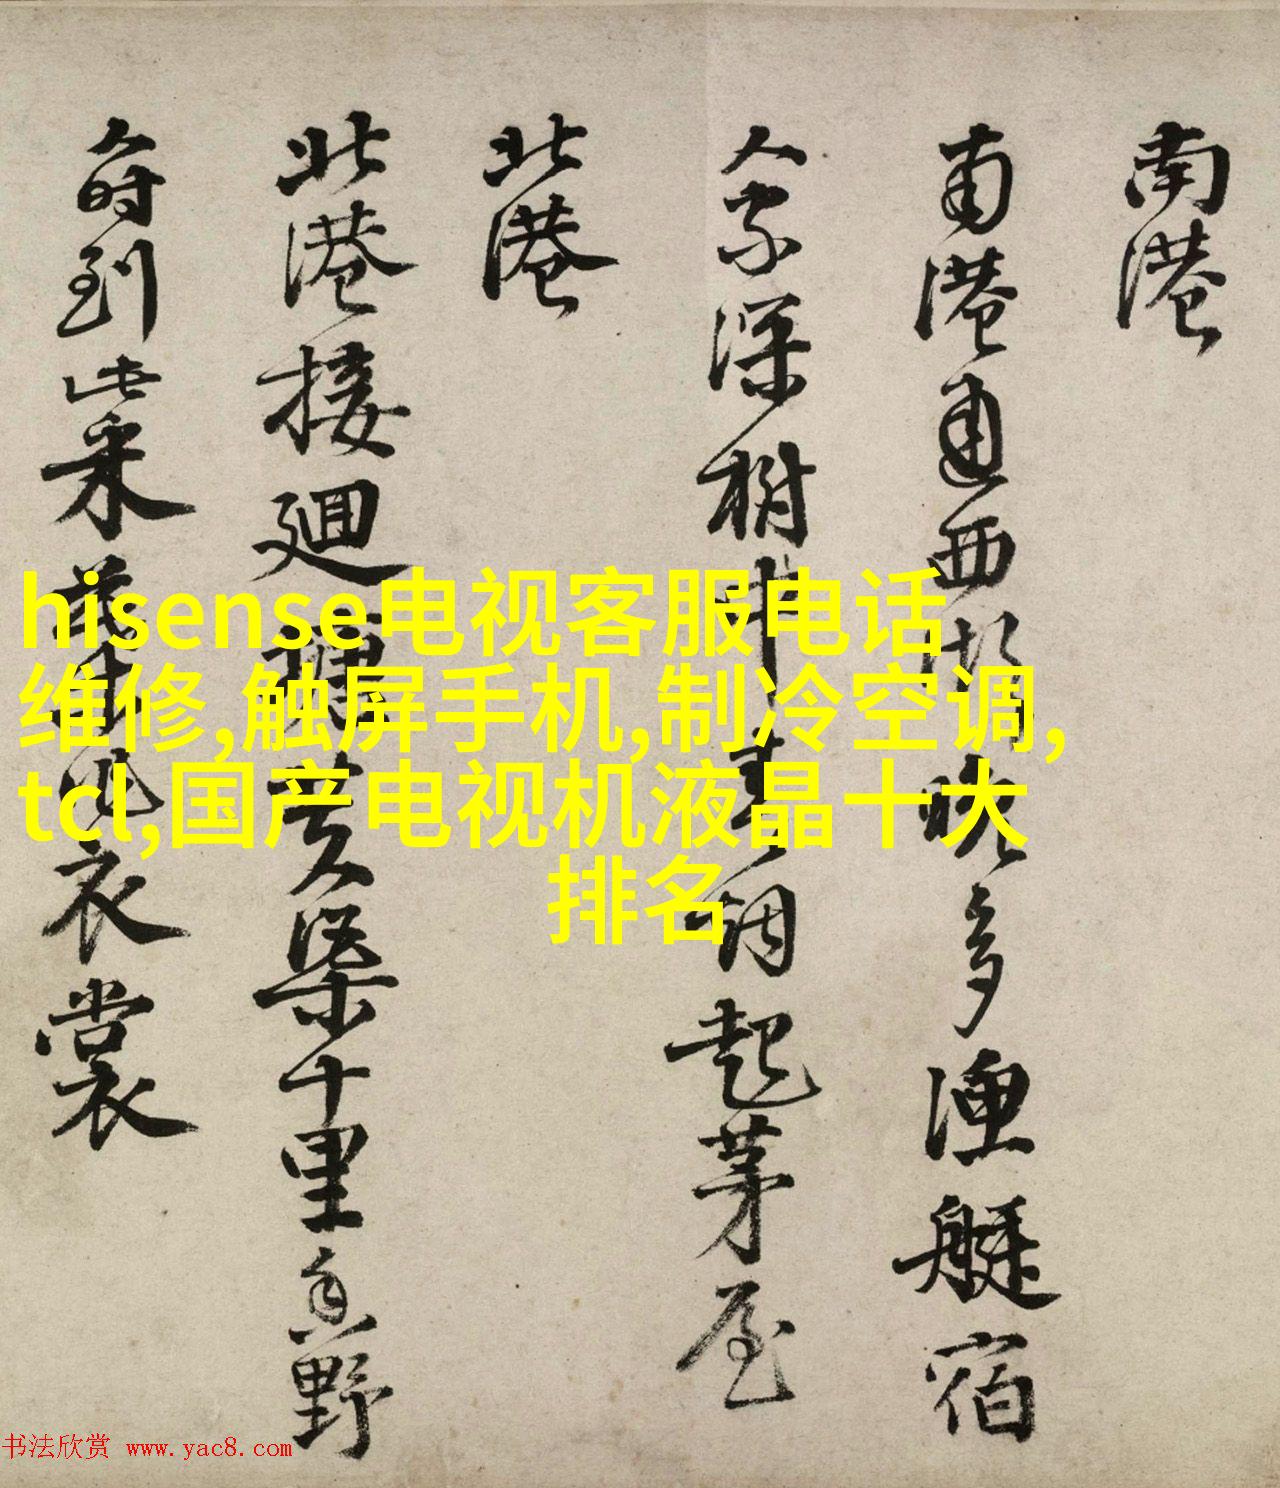 南港
南港通西湖晚多漁艇宿
人家深樹中烟起茅屋
北港
北港接迴塘芙渠十里香野
人時到此采衣裳
hisense电视客服电话
维修,触屏手机,制冷空调,
tcl,国产电视机液晶十大
排名
书法欣赏 www.yac8.com